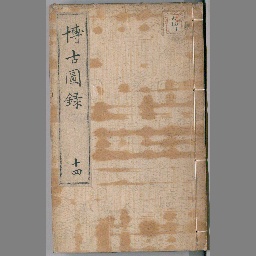 博古圖錄
十四